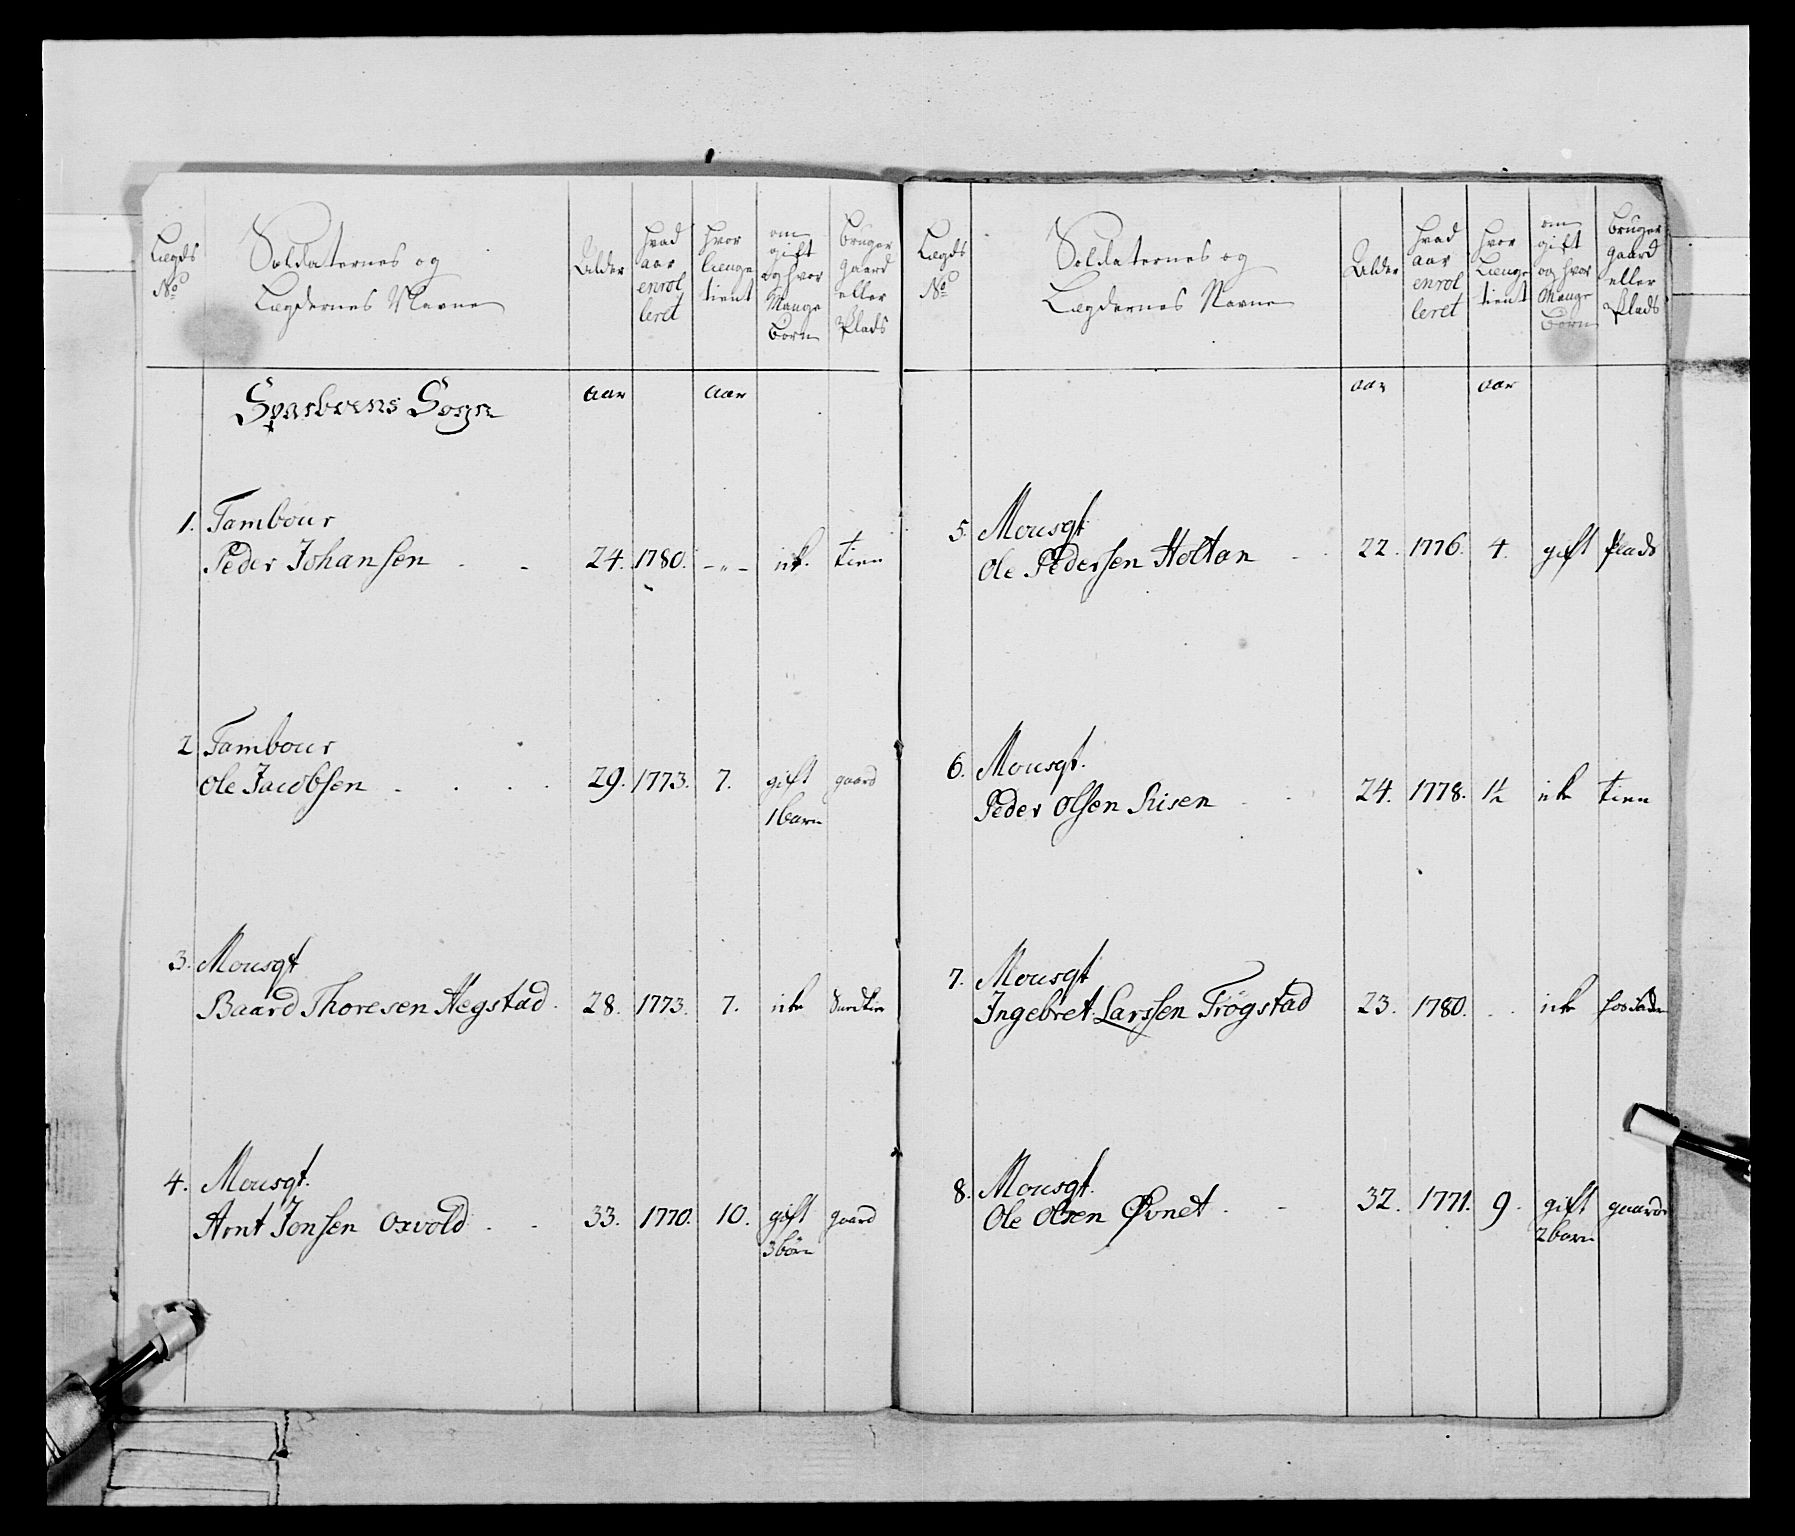 Lægds No
Soldaternes og
Lægdernes Navne
Alder
hvad aar enrolleret
hvor længe tient
om gift og hvor Mange börn
bruger gaard eller Plads
Sparboens Sogn
aar aar
1. Tambour
Peder Johansen - - 24. 1780. - " - ik. tien
2 Tambour
Ole Jacobsen - . . . 29. 1773. 7. gift gaard
1 barn
3. Mousqt
Baard Thoresen Hegstad . 28. 1773. 7. ike
4. Mousqt.
Arnt Jonsen Oxvold - - 33. 1770. 10. gift gaard
3 börn
Lægds No
Soldaternes og
Lægdernes Navne
Alder
hvad aar enrolleret
hvor Længe tient
om gift og hvor Mange börn
bruger gaard eller Plads
aar aar
5. Mousqt
Ole Pedersen Holtan - . 22. 1776. 4. gift Plads
6. Mousqt.
Peder Olsen Risen - - 24. 1778. 1½ ike tien
7. Mousqt
Ingebret Larssen Trögstad 23. 1780. . . ike
8. Mousqt.
Ole Olsen Øvnet . - 32. 1771. 9. gift gaard
2 barn